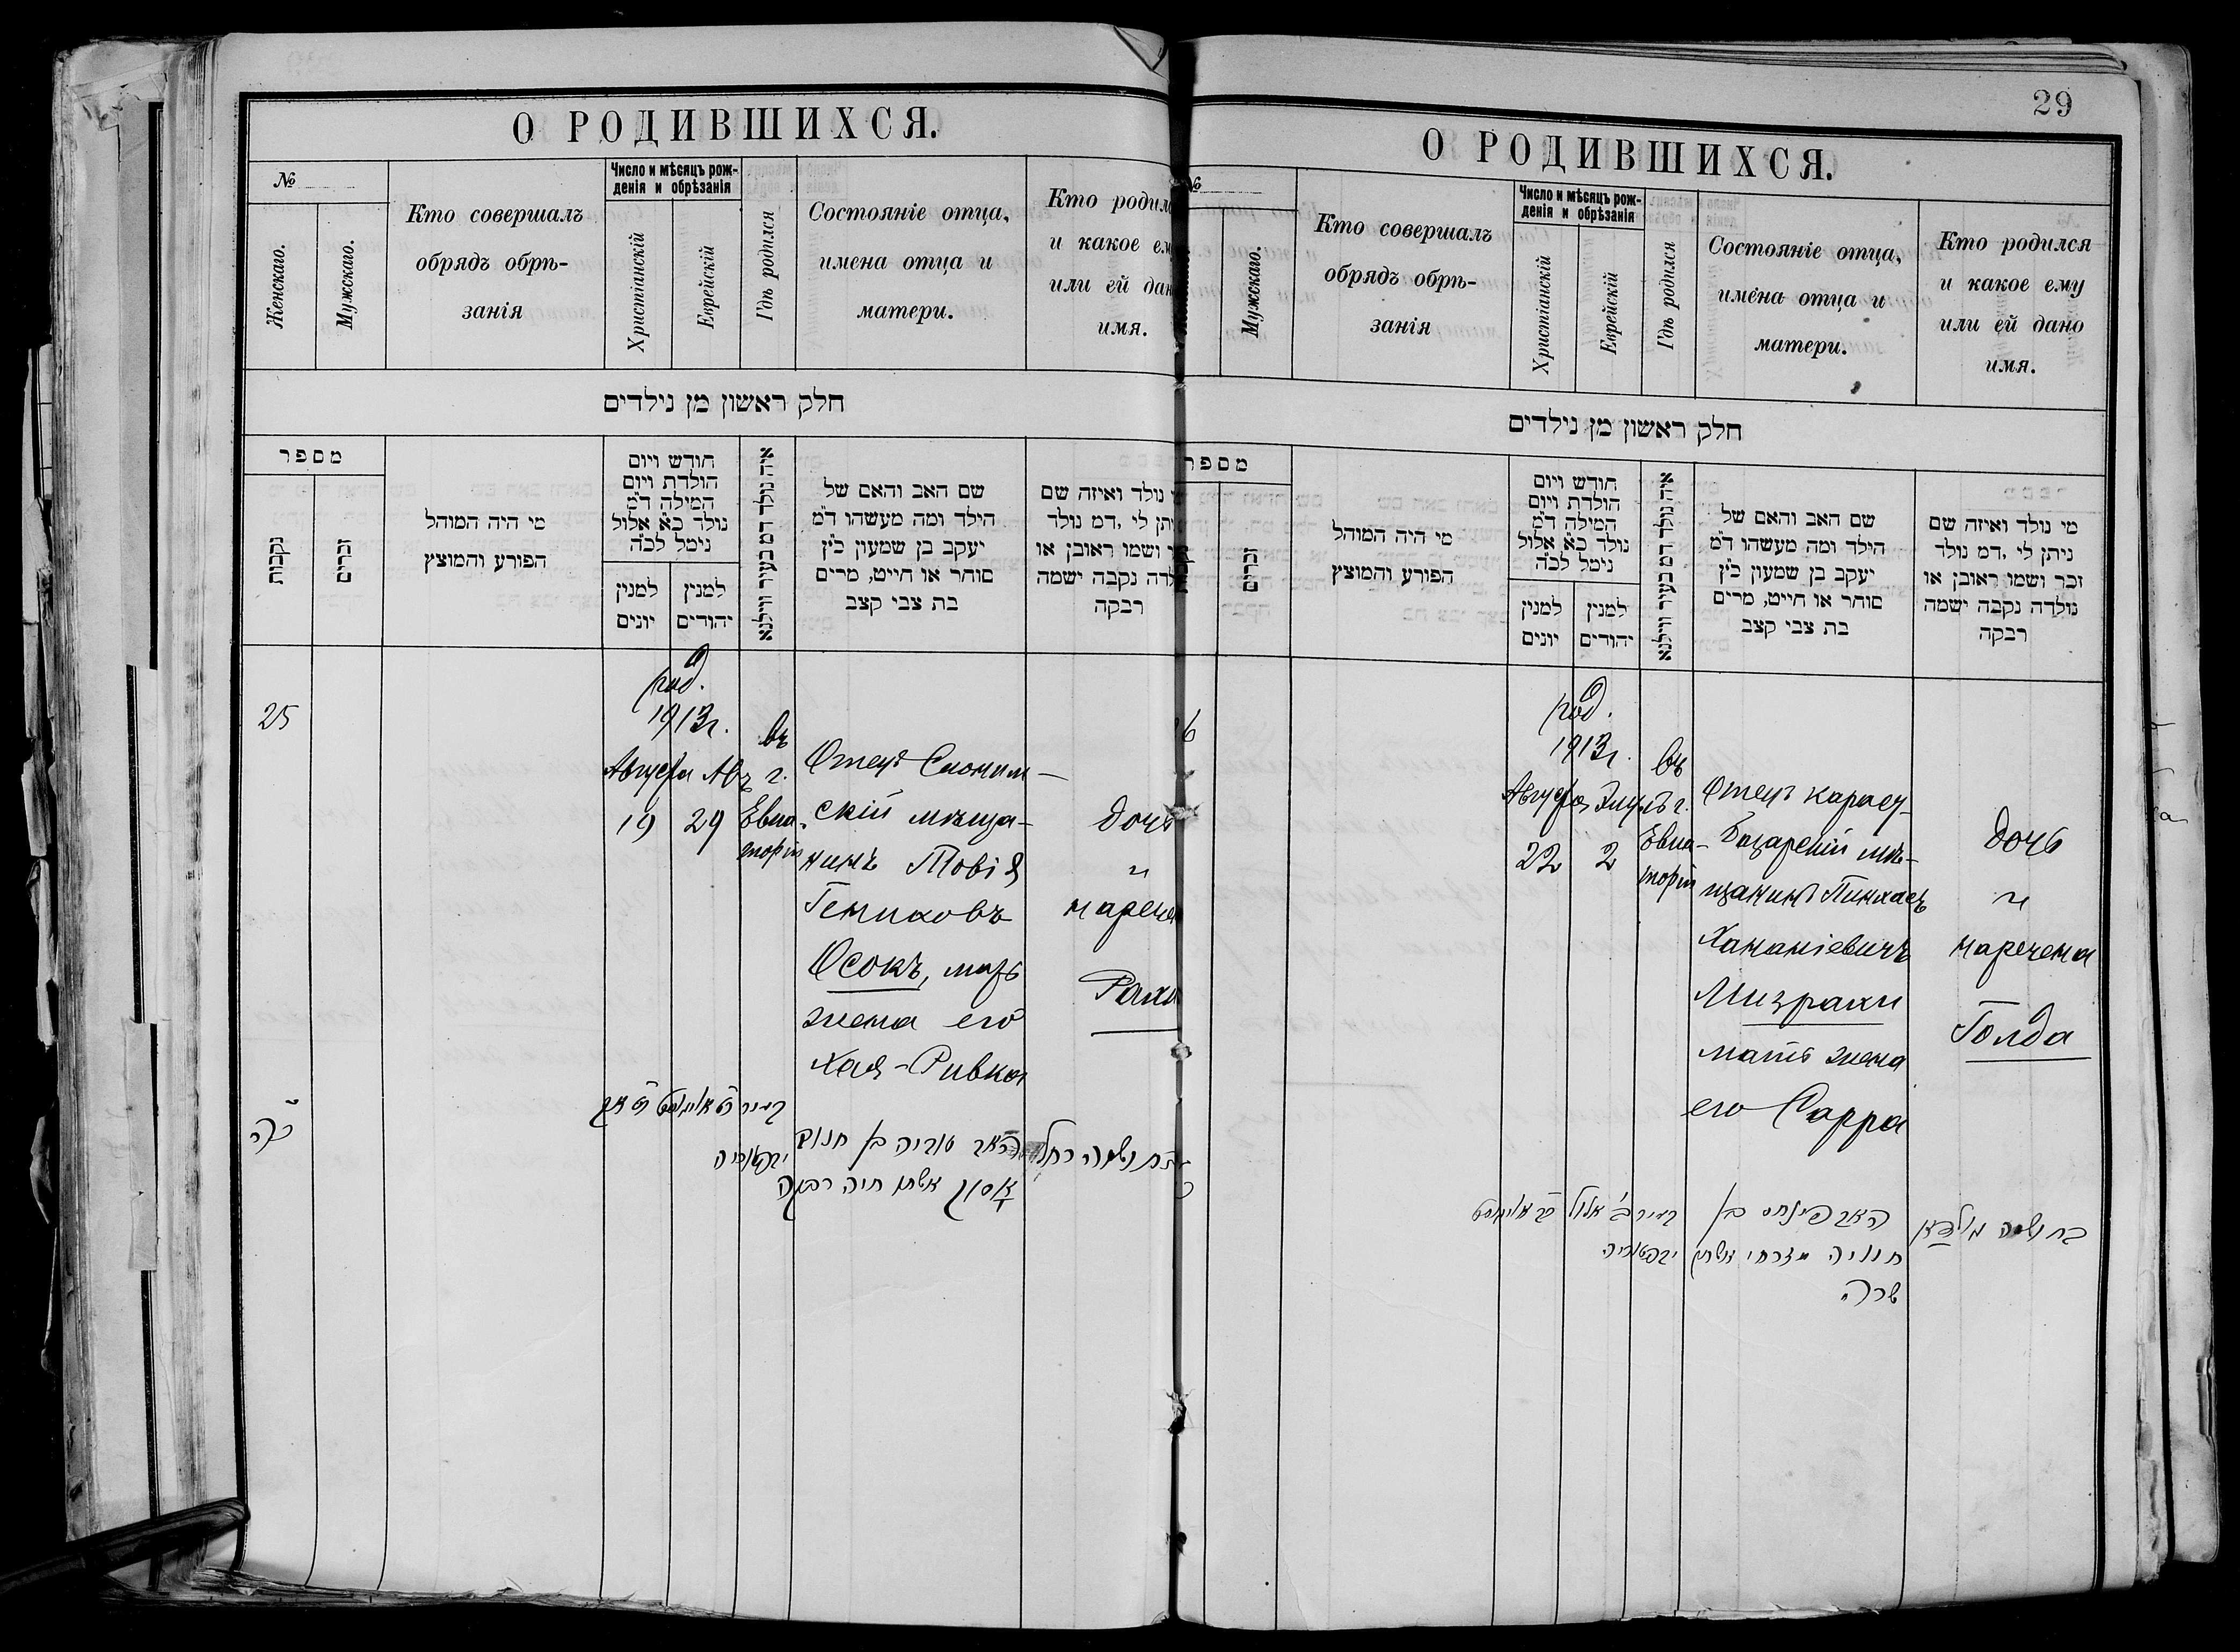 О РОДИВШИХСЯ.
№
Женскаго.
Мужскаго.
Кто совершалъ
обрядъ обрѣ-
занія
Число и мѣсяцъ рож-
денія и обрѣзанія
Христіанскій
Еврейскій
Гдѣ родился
Состояніе отца,
имена отца и
матери.
Кто родил
и какое ем
или ей дан
имя.
חלק ראשון מן נילדים
מספר
נקבות
זכרים
מי היה המוהל
הפורע והמוצץ
חודש ויום
הולדת ויום
המילה ד״מ
נולד כ״א אלול
נימל לכ״ה
למנין
יונים
למנין
יהודים
איה נולד דמ בעיר ווילנא
שם האב והאם של
הילד ומה מעשהו ד״מ
יעקב בן שמעון כ״ץ
סוחר או חייט, מרים
בת צבי קצב
נולד ואיזה שם
יתן לי, דמ נולד
ושמו ראובן או
לדה נקבה ישמה
רבקה
25
род.
1913 г.
Августа Авъ
19 29
въ
г.
Евпа-
торіи
Отецъ Слоним-
скій мѣща-
нинъ Товія
Гениховъ
Осокъ, мать
жена его
Хая-Ривка
дочь
и
нарече
Рахи
כ״ה
יבפטוריה
טוביה בן חנוך
אסוק אשתו חיה רבקה
ושמה רחל
29
О РОДИВШИХСЯ.
№
Мужскаго.
Кто совершалъ
обрядъ обрѣ-
занія
Число и мѣсяцъ рож-
денія и обрѣзанія
Христіанскій
Еврейскій
Гдѣ родился
Состояніе отца,
имена отца и
матери.
Кто родился
и какое ему
или ей дано
имя.
חלק ראשון מן נילדים
מספר
זכרים
מי היה המוהל
הפורע והמוצץ
חודש ויום
הולדת ויום
המילה ד״מ
נולד כ״א אלול
נימל לכ״ה
למנין
יונים
למנין
יהודים
איה נולד דמ בעיר ווילנא
שם האב והאם של
הילד ומה מעשהו ד״מ
יעקב בן שמעון כ״ץ
סוחר או חייט, מרים
בת צבי קצב
מי נולד ואיזה שם
ניתן לי, דמ נולד
זכר ושמו ראובן או
נולדה נקבה ישמה
רבקה
6
род.
1913 г.
Августа Элулъ
22 2
въ
г.
Евпа-
торіи
Отецъ карасу-
базарскій мѣ-
щанинъ Пинхасъ
Хананіевичъ
Мизрахи
мать жена
его Сарра
дочь
и
наречена
Голда
האב פינחס בן
חנניה מזרחי אשתו
שרה
יבפטוריה
בת ושמה גולדא